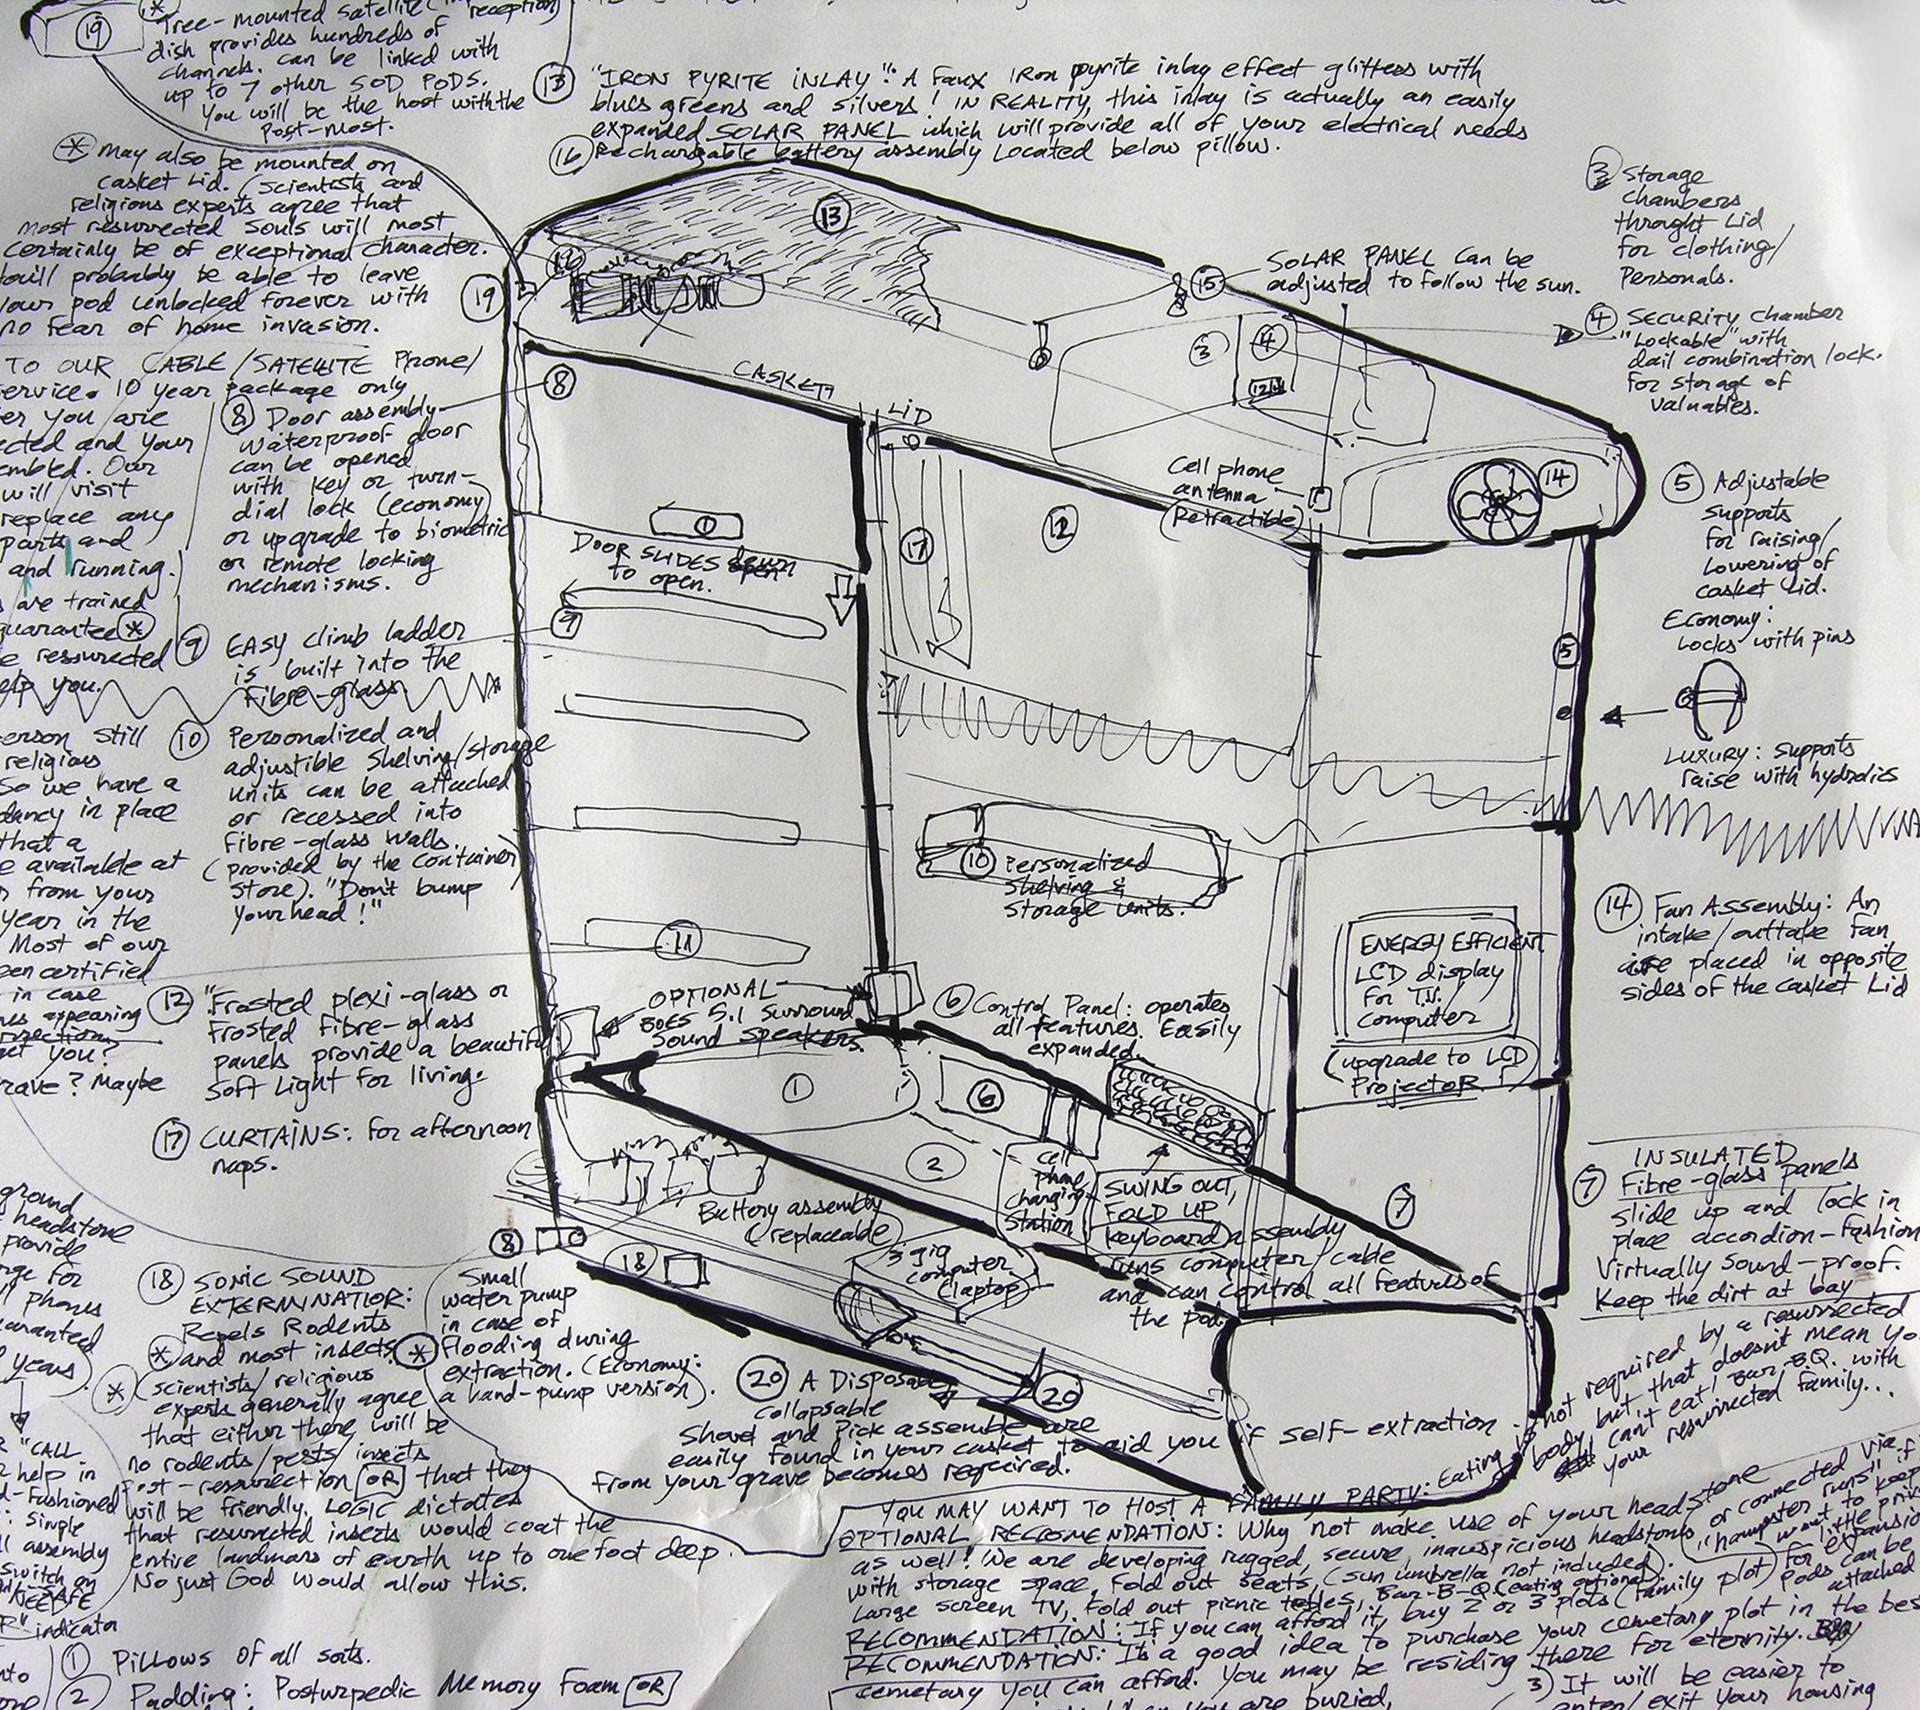 19
* Tree-mounted satellite (
reception)
dish provides hundreds of
channels. can be linked with
up to 7 other SOD PODS.
You will be the host with the
post-most.
* may also be mounted on
casket Lid. (Scientists and
religious experts agree that
most resurrected souls will most
certainly be of exceptional character.
You'll probably be able to leave
your pod unlocked forever with
no fear of home invasion.
13 "IRON PYRITE INLAY": A faux Iron pyrite inlay effect glitters with
blues greens and silvers! IN REALITY, this inlay is actually an easily
expanded SOLAR PANEL which will provide all of your electrical needs
16 Rechargable battery assembly Located below pillow.
3 Storage
chambers
throught Lid
for clothing/
Personals.
15 SOLAR PANEL can be
adjusted to follow the sun.
4 SECURITY Chamber
"Lockable" with
dail combination lock.
for storage of
valuables.
13
16
19
3
4
CASKET
LID
TO OUR CABLE/SATELLITE Phone/
service. 10 year package only
er you are
ected and your
embled. Our
will visit
replace any
parts and
and running.
are trained
guarantee *
e ressurected
elp you.
8 Door assembly
waterproof door
can be opened
with key or turn-
dial lock (economy)
or upgrade to biometric
or remote locking
mechanisms.
8
DOOR SLIDES down
to open.
17
12
Cell phone
antenna
(Retractible)
14
5 Adjustable
supports
for raising/
lowering of
casket Lid.
Economy:
Locks with pins
5
LUXURY: supports
raise with hydrolics
9 EASY climb ladder
is built into the
Fibre-glass.
9
erson still
religious
So we have a
dancy in place
that a
e available at
s from your
year in the
Most of our
een certified
in case
appearing
get you?
rave? Maybe
10 Personalized and
adjustible shelving/storage
units can be attached
or recessed into
Fibre-glass walls.
(provided by the container
store). "Don't bump
your head!"
10 Personalized
shelving &
storage units.
11
ENERGY EFFICIENT
LCD display
for T.V./
computer
(upgrade to LCD
Projector!)
14 Fan Assembly: An
intake/outtake fan
are placed in opposite
sides of the casket Lid
12 "Frosted plexi-glass or
frosted fibre-glass
panels provide a beautiful
soft light for living.
OPTIONAL
BOES 5.1 surround
sound speakers.
6 Control Panel: operates
all features. Easily
expanded.
1
6
2
17 CURTAINS: for afternoon
naps.
Battery assembly
(replaceable)
cell
phone
charging
station
SWING OUT,
FOLD UP
keyboard assembly
runs computer/cable
and can control all features of
the pod
3 gig
computer
(laptop)
7
INSULATED
7 Fibre-glass panels
slide up and lock in
place accordion-fashion
Virtually sound-proof.
Keep the dirt at bay
8
18
ground
headstone
provide
rge for
phones
aranteed
years)
18 SONIC SOUND
EXTERMINATIOR:
Repels Rodents
* and most insects
* (scientists/religious
experts generally agree
that either there will be
no rodents/pests/insects
post-ressurection OR that they
will be friendly. LOGIC dictates
that resurrected insects would coat the
entire landmass of earth up to one foot deep.
No just God would allow this.
Small
water pump
in case of
* flooding during
extraction. (Economy:
a hand-pump version).
20 A Disposable
collapsable
Shovel and Pick assemble are
easily found in your casket to aid you if self-extraction
from your grave becomes required.
20
"CALL
help in
d-fashioned
: simple
assembly
switch on
indicator
YOU MAY WANT TO HOST A FAMILY PARTY: Eating is not required by a resurrected
body, but, that doesn't mean you
can't eat! Bar-B.Q. with
your resurrected family...
OPTIONAL RECCOMENDATION: Why not make use of your headstone
as well! We are developing rugged, secure, inauspicious headstones
with storage space, fold out seats, (sun umbrella not included).
Large screen TV, fold out picnic tables, Bar-B-Q (eating optional).
RECOMMENDATION: If you can afford it, buy 2 or 3 plots (family plot) for expansion
or connected via
"hampster runs" if
want to keep
little
Pods can be
attached
RECOMMENDATION: It's a good idea to purchase your cemetary plot in the best
cemetary you can afford. You may be residing there for eternity.
you are buried,
3) It will be easier to
enter/exit your housing
1 Pillows of all sorts.
2 Padding: Posturpedic Memory Foam OR